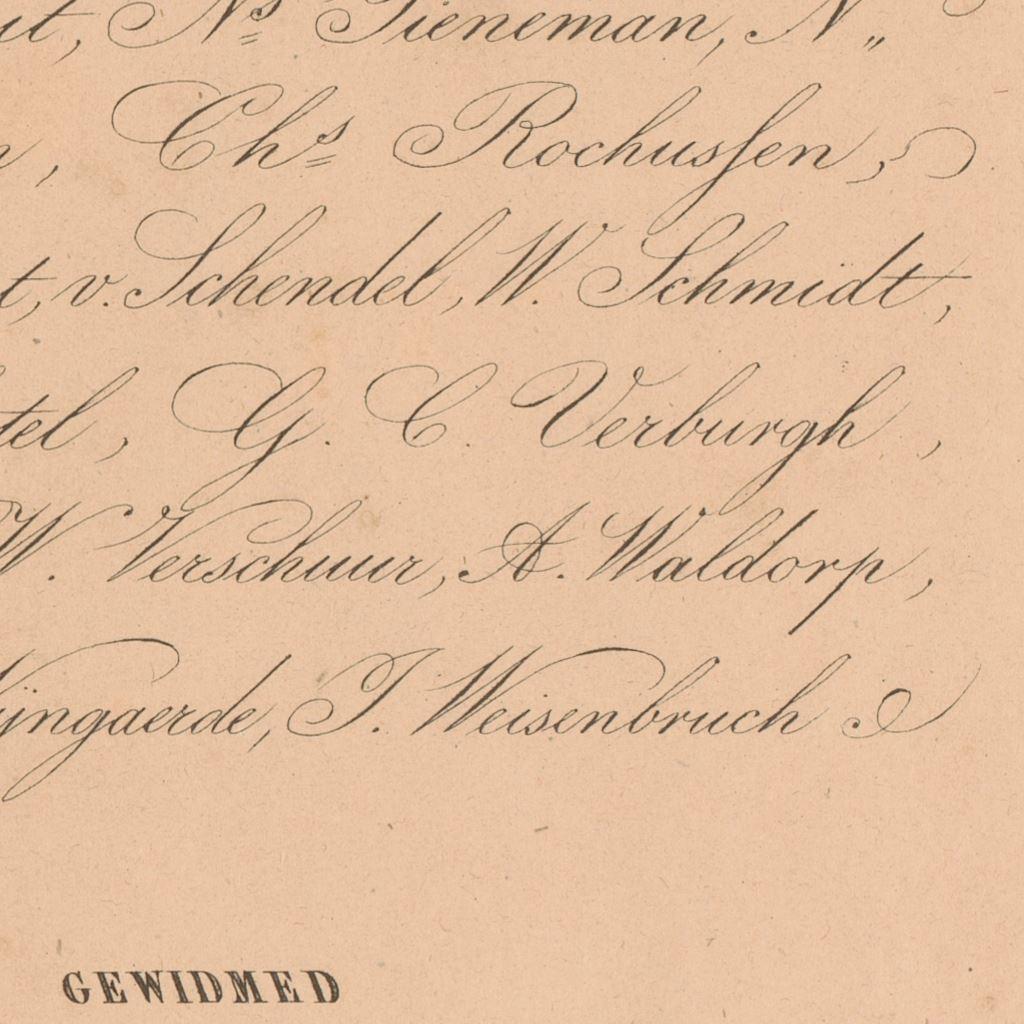 Ns Tieneman, N„
Chs Rochussen,
v. Schendel, W. Schmidt,
tel, G. C. Verburgh,
W. Verschuur, A. Waldorp,
ijngaerde, J. Weisenbruch
GEWIDMED